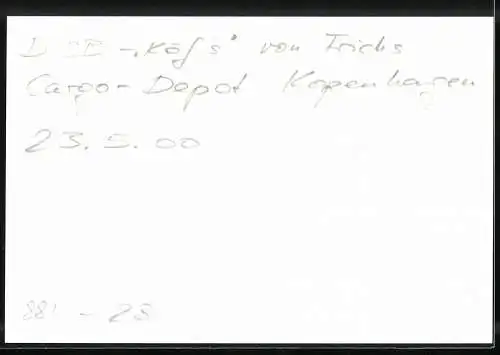 "Köf's" von Frichs
Cargo-Depot Kopenhagen
23.5.00
881 - 28